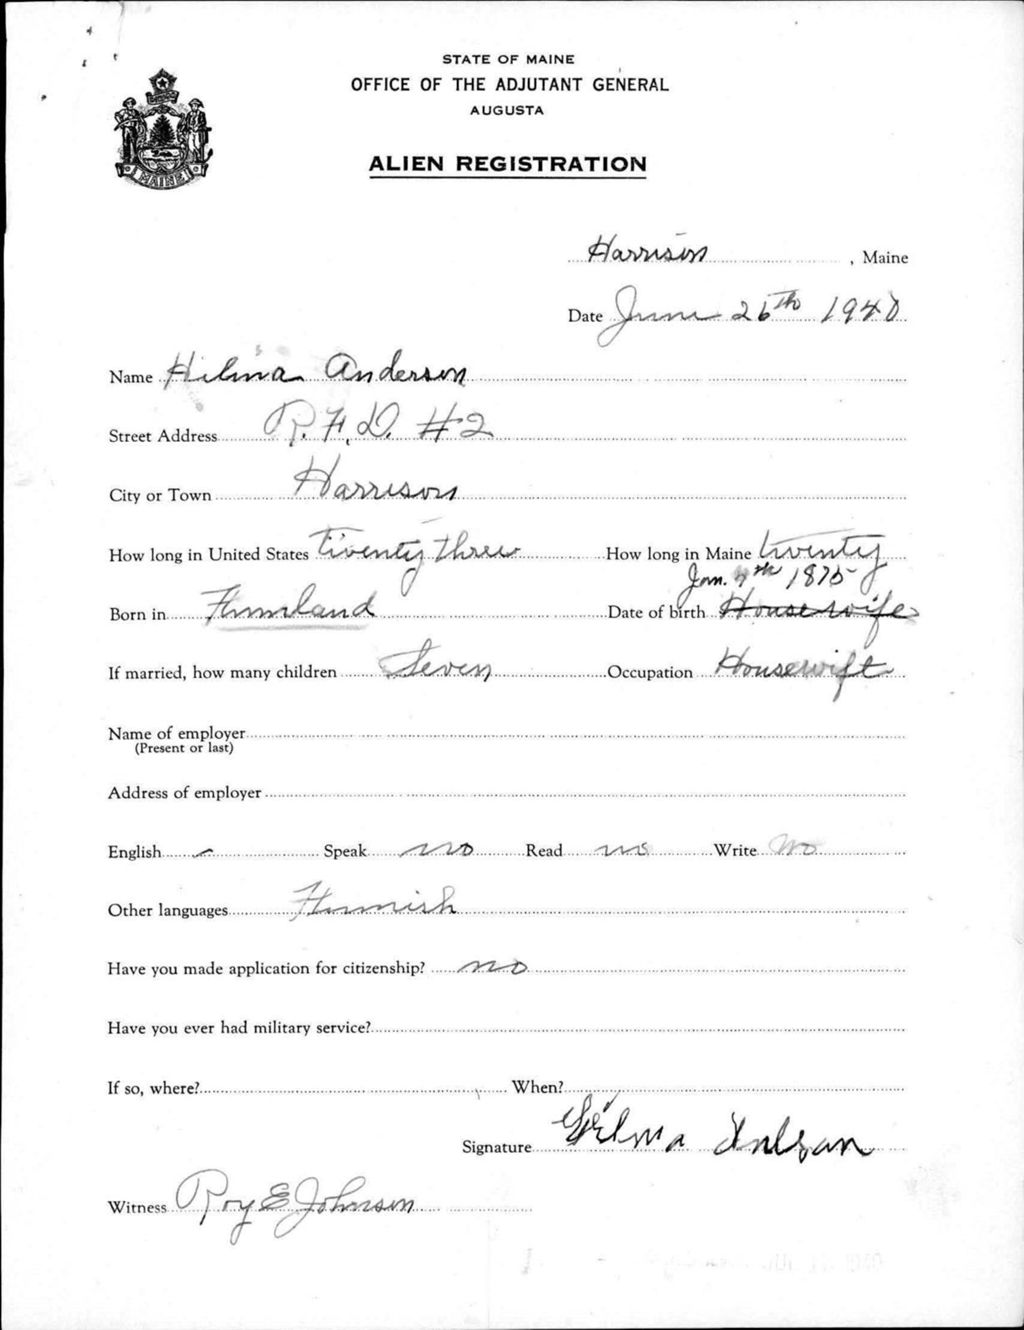 STATE OF MAINE
OFFICE OF THE ADJUTANT GENERAL
AUGUSTA
MAINE
ALIEN REGISTRATION
Harrison, Maine
Date June 26th 1940
Name Hilma Anderson
Street Address R.F.D. #2
City or Town Harrison
How long in United States twenty three How long in Maine twenty
Jan. 7th 1875
Born in Finnland Date of birth Housewife
If married, how many children Seven Occupation Housewife
Name of employer
(Present or last)
Address of employer
English Speak no Read no Write no
Other languages Finnish
Have you made application for citizenship? no
Have you ever had military service?
If so, where? When?
Signature Hilma
Witness Roy E Johnson